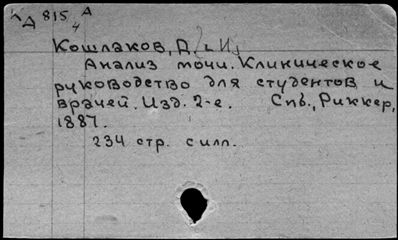 Д 815 А
4
Кошлаков, Д. И.
Анализ мочи. Клиническое
руководство для студентов и
врачей. Изд. 2-е. Спб., Риккер,
1887.
234 стр. с илл.